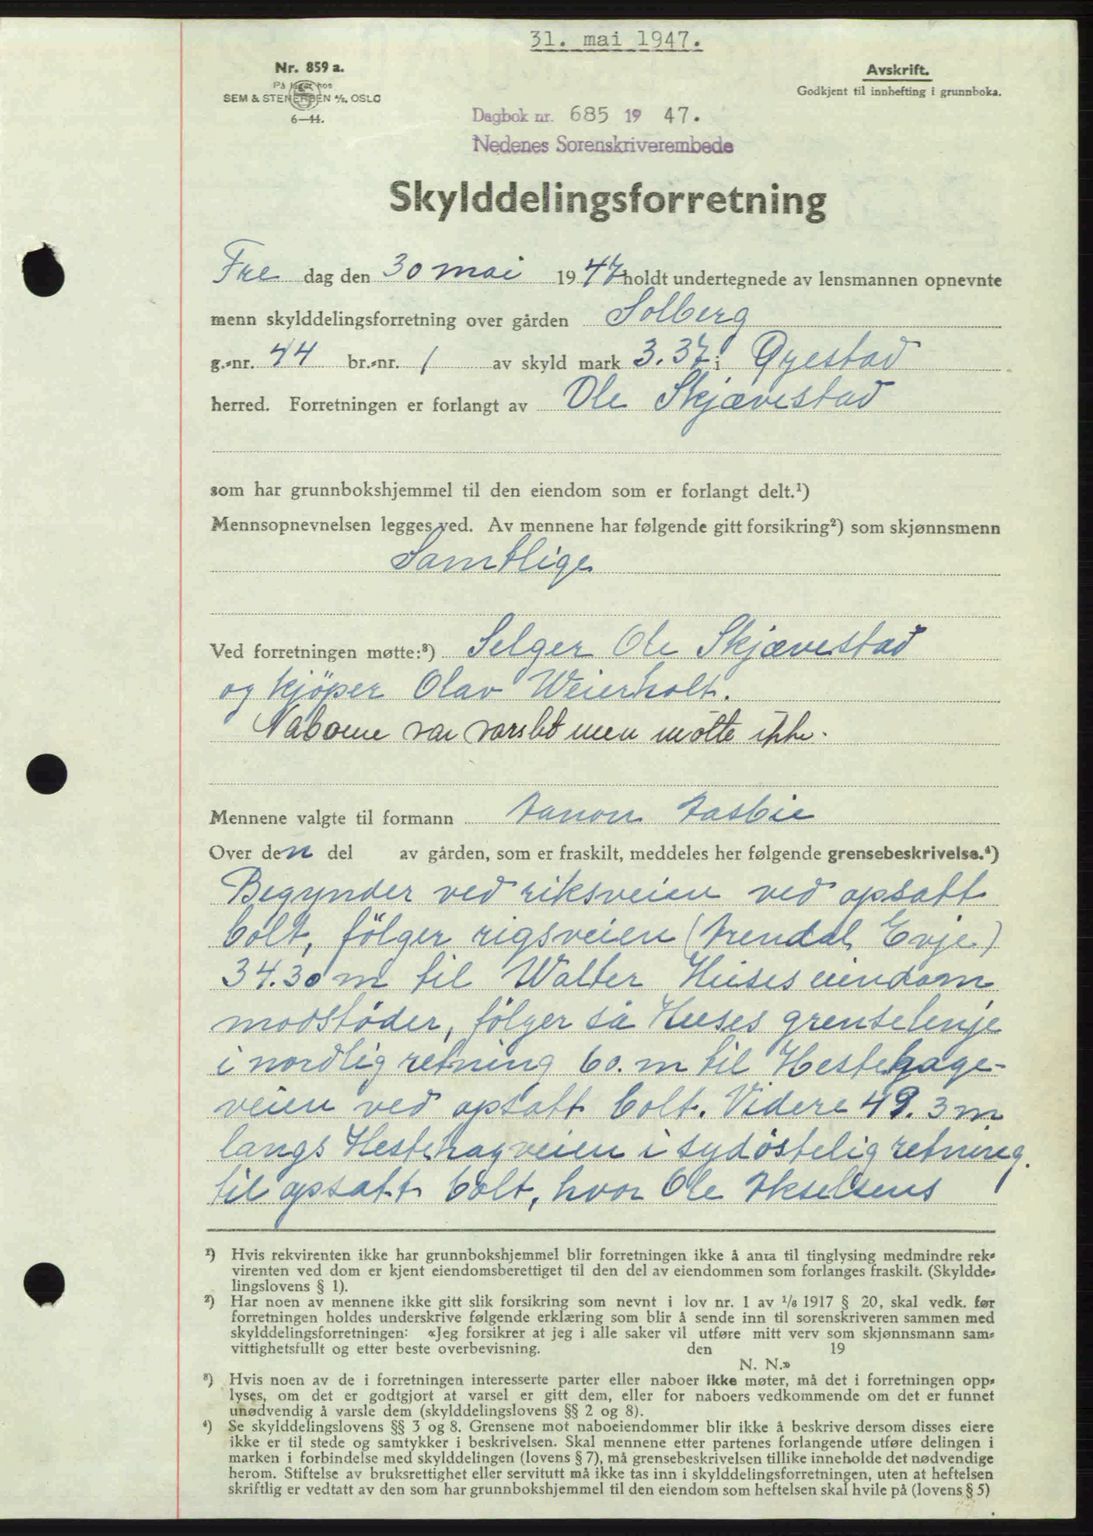 31. mai 1947.
Nr. 859 a.
På lager hos
SEM & STENERSEN A/S. OSLO
6—44.
Avskrift.
Godkjent til innhefting i grunnboka.
Dagbok nr. 685 19 47.
Nedenes Sorenskriverembede
Skylddelingsforretning
Fre dag den 30 mai 1947 holdt undertegnede av lensmannen opnevnte
menn skylddelingsforretning over gården Solberg
g.-nr. 44 br.-nr. 1 av skyld mark 3.37 i Øyestad
herred. Forretningen er forlangt av Ole Skjævestad
som har grunnbokshjemmel til den eiendom som er forlangt delt.¹)
Mennsopnevnelsen legges ved. Av mennene har følgende gitt forsikring²) som skjønnsmenn
Samtlige
Ved forretningen møtte:³) Selger Ole Skjævestad
og kjöper Olav Weierholt.
Naboene var varslet men møtte ikke.
Mennene valgte til formann
Over den del av gården, som er fraskilt, meddeles her følgende grensebeskrivelse.⁴)
Begynder ved riksveien ved opsatt
bolt, fölger rigsveien (Arendal Evje)
34.30 m til Walter Heies eiendom
modstöder, fölger så Heies grenselinje
i nordlig retning 60. m til Hestehage-
veien ved opsatt bolt. Videre 49.3 m
langs Hestehagveien i sydöstelig retning.
til opsatt bolt, hvor Ole Akselsens
¹) Hvis rekvirenten ikke har grunnbokshjemmel blir forretningen ikke å anta til tinglysing medmindre rek-
virenten ved dom er kjent eiendomsberettiget til den del av eiendommen som forlanges fraskilt. (Skyldde-
lingslovens § 1).
²) Har noen av mennene ikke gitt slik forsikring som nevnt i lov nr. 1 av 1/8 1917 § 20, skal vedk. før
forretningen holdes underskrive følgende erklæring som blir å sende inn til sorenskriveren sammen med
skylddelingsforretningen: «Jeg forsikrer at jeg i alle saker vil utføre mitt verv som skjønnsmann sam-
vittighetsfullt og etter beste overbevisning. den 19
N. N.»
³) Hvis noen av de i forretningen interesserte parter eller naboer ikke møter, må det i forretningen opp-
lyses, om det er godtgjort at varsel er gitt dem, eller for naboers vedkommende om det er funnet
unødvendig å varsle dem (skylddelingslovens §§ 2 og 8).
⁴) Se skylddelingslovens §§ 3 og 8. Grensene mot naboeiendommer blir ikke å beskrive dersom disses eiere
ikke er til stede og samtykker i beskrivelsen. Skal mennene etter partenes forlangende utføre delingen i
marken i forbindelse med skylddelingen (lovens § 7), må grensebeskrivelsen tillike inneholde det nødvendige
herom. Stiftelse av bruksrettighet eller servitutt må ikke tas inn i skylddelingsforretningen, uten at heftelsen
skriftlig er vedtatt av den som har grunnbokshjemmel til den eiendom som heftelsen skal hvile på (lovens § 5)